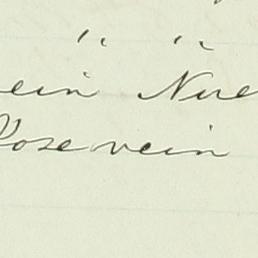 " "
ein Nue
Rosevein